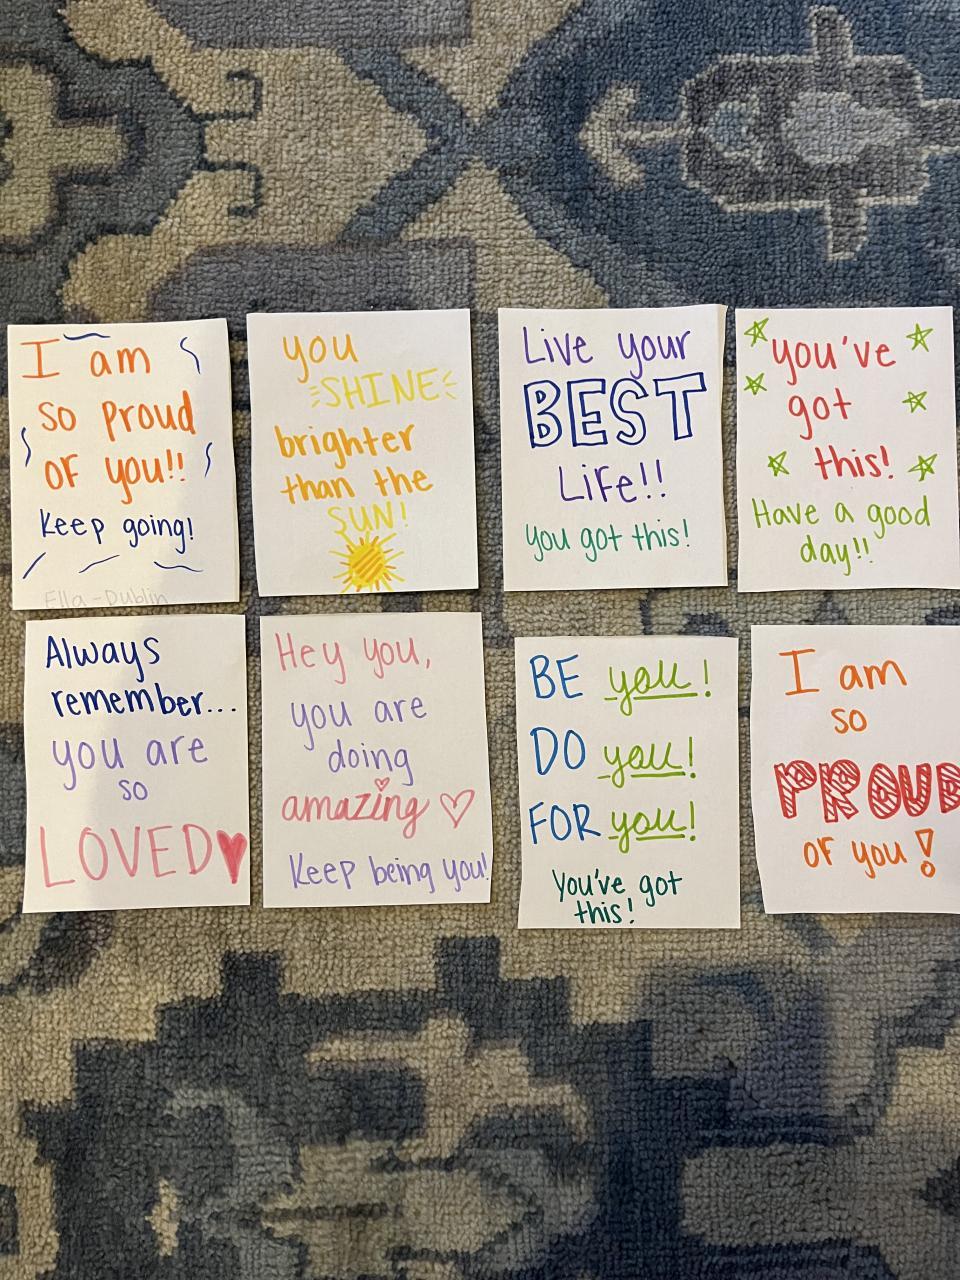 I am
so proud
of you!!
Keep going!
Ella-Dublin
you
SHINE
brighter
than the
SUN!
Live your
BEST
Life!!
you got this!
you've
got
this!
Have a good
day!!
Always
remember...
you are
so
LOVED
Hey you,
you are
doing
amazing
Keep being you!
BE you!
DO you!
FOR you!
You've got
this!
I am
so
PROUD
of you!